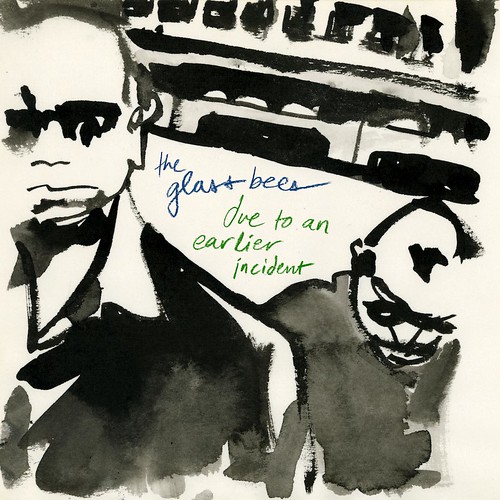 the
glass bees
due to an
earlier
incident